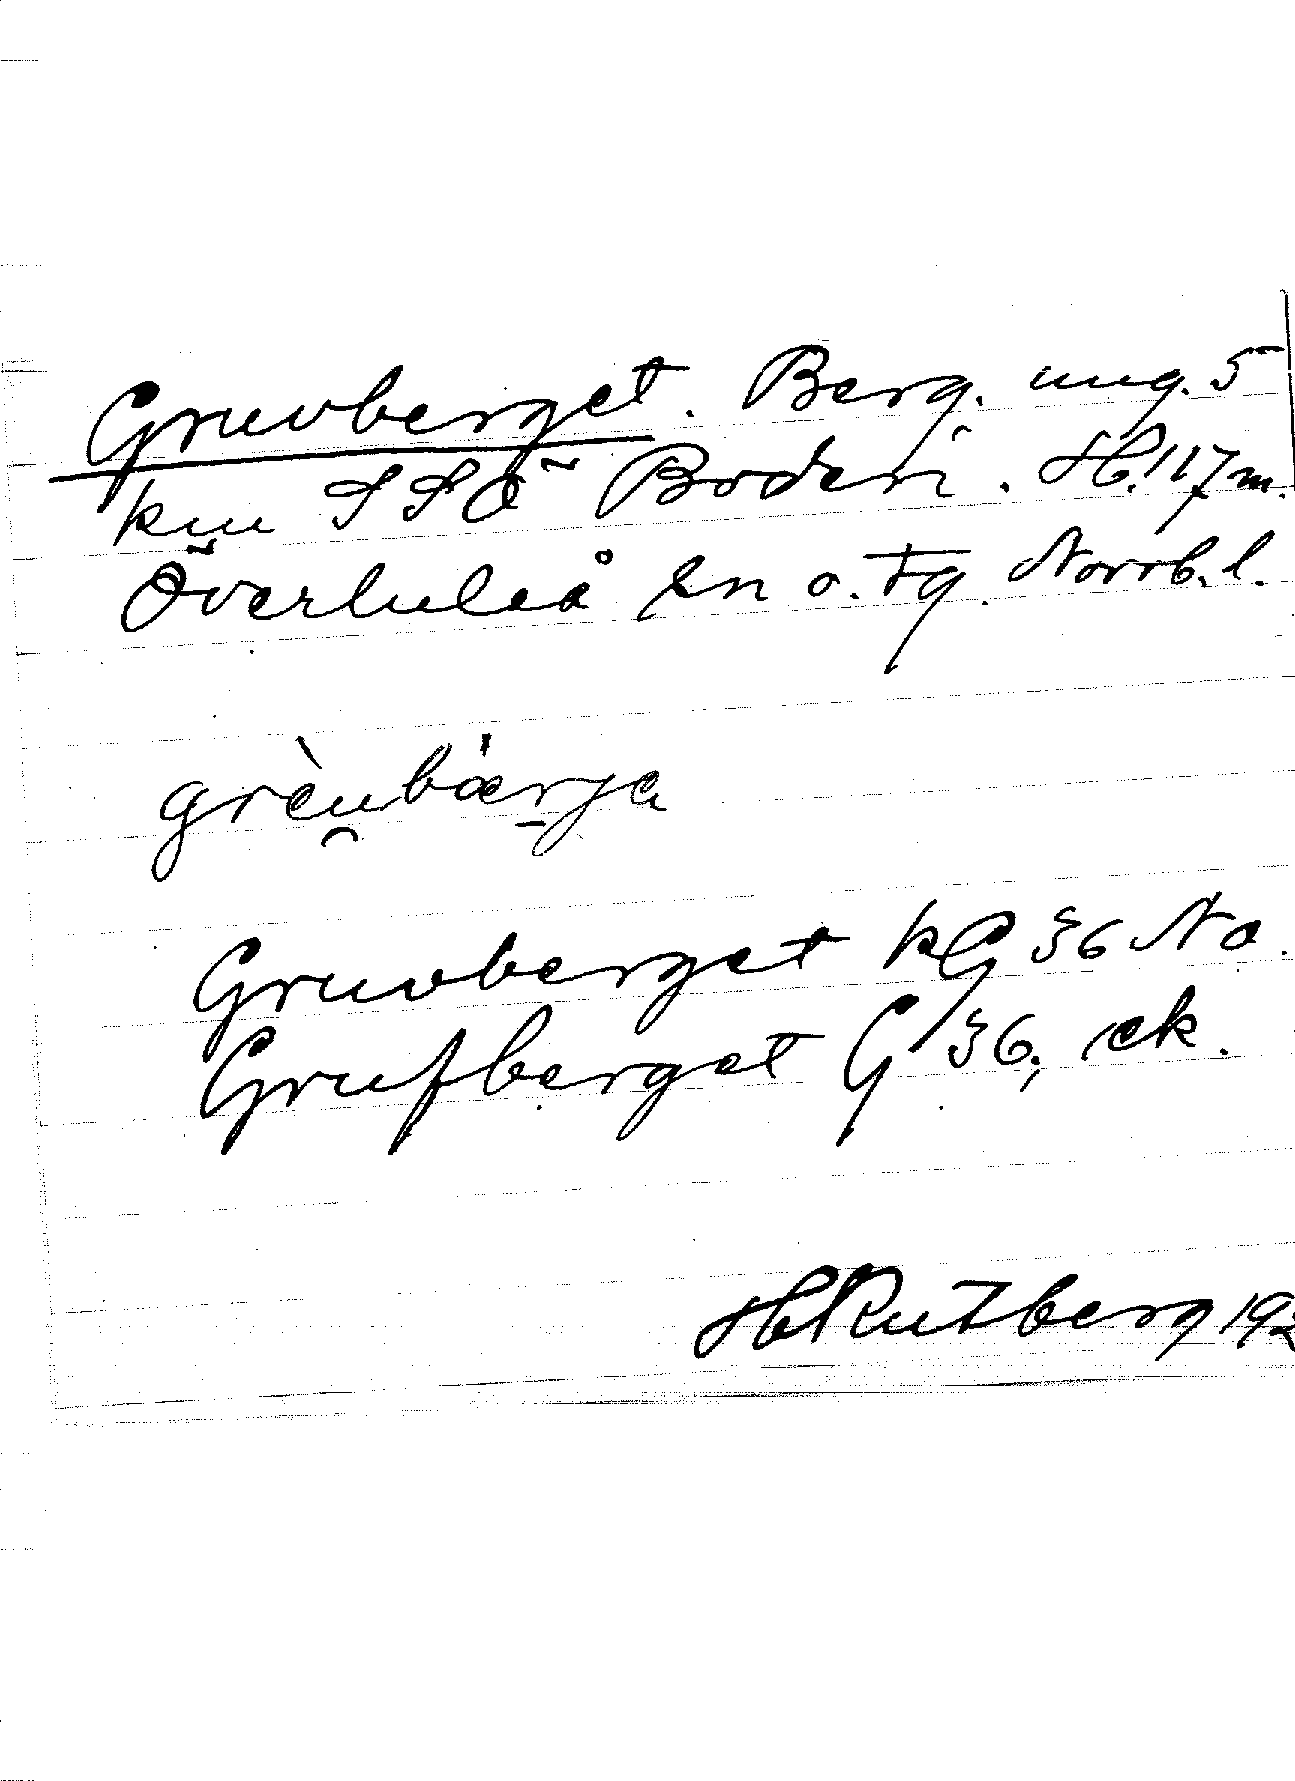 Gruvberget. Berg. ung. 5
km SSÖ Boden. H. 117 m.
Överluleå sn o. tg. Norrb. l.
grèu̯bär̠ja
Gruvberget kG 36 No.
Grufberget G 36, ek.
H Rutberg 192